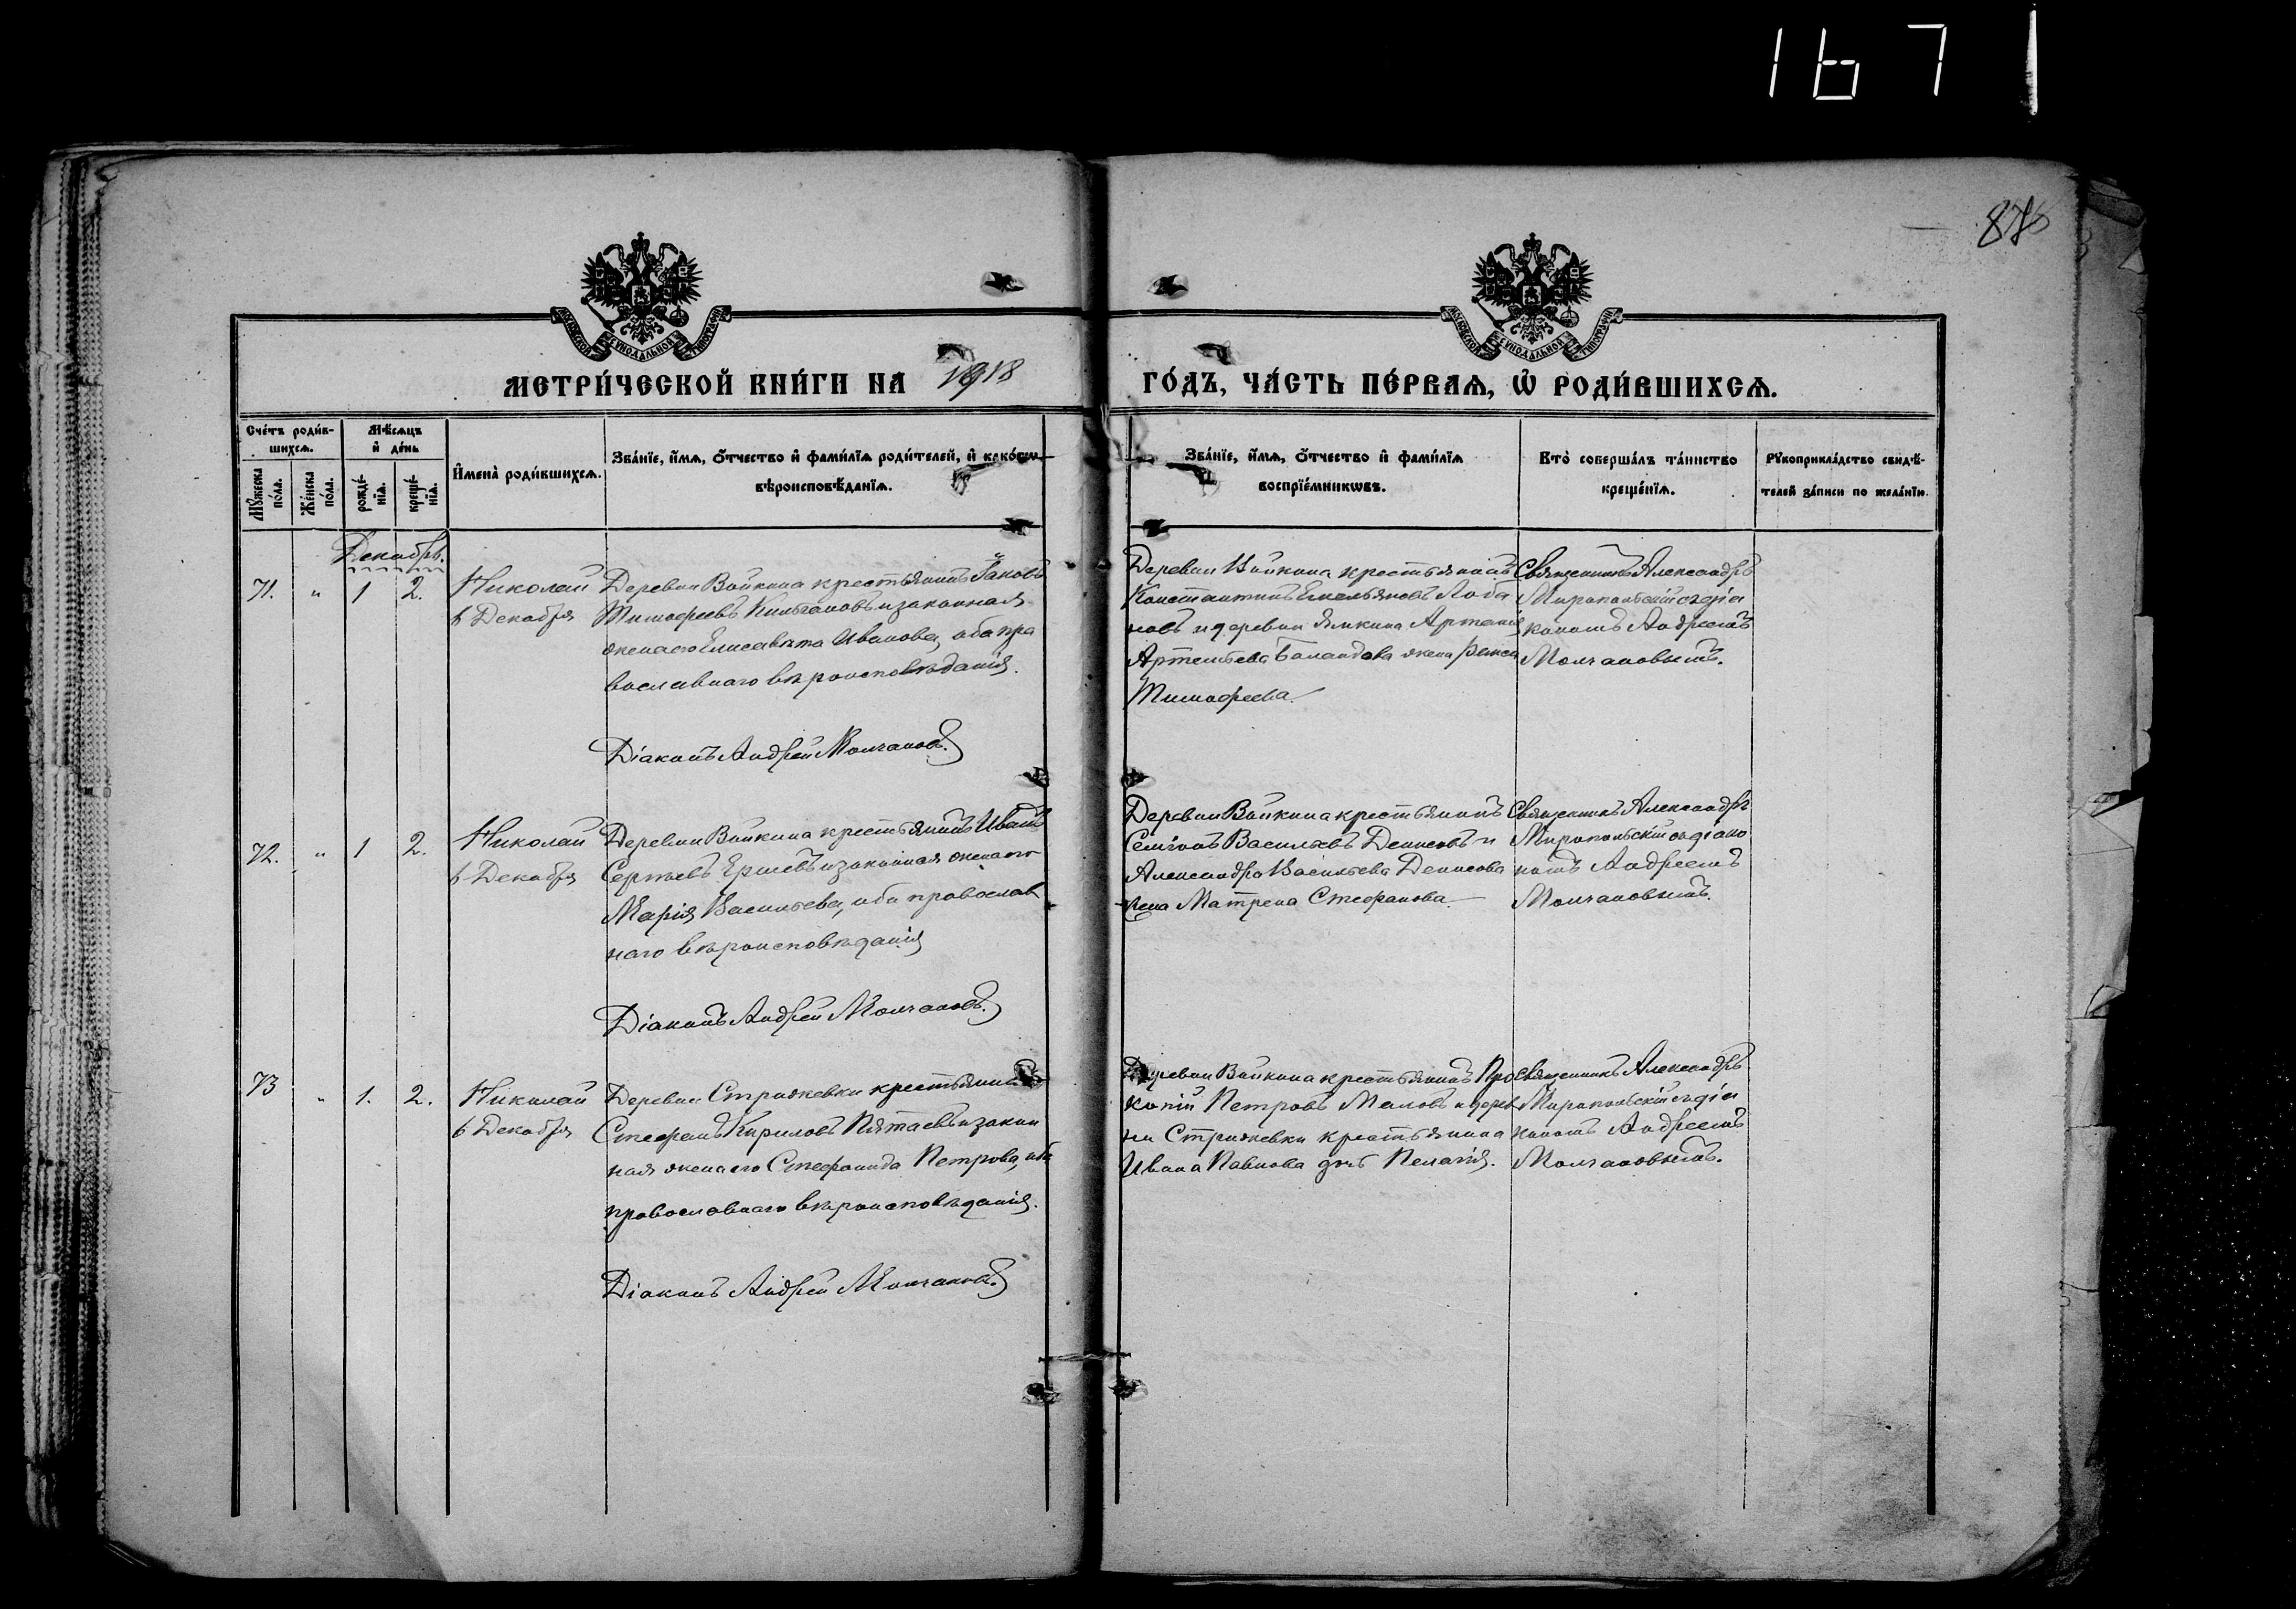 1671
876
МОСКОВСКОЙ СѴНОДАЛЬНОЙ ТИПОГРАФІИ
МОСКОВСКОЙ СѴНОДАЛЬНОЙ ТИПОГРАФІИ
МЕТРИ́ЧЕСКОЙ КНИ́ГИ НА 1918 ГО́ДЪ, ЧА́СТЬ ПЕ́РВАѦ, Ѡ҆ РОДИ́ВШИХСѦ.
Сче́тъ роди́в-
шихсѧ.
Мꙋ́жеска по́ла.
Же́нска по́ла.
Мѣ́сѧцъ
и҆ де́нь
рожде́-
нїѧ.
креще́-
нїѧ.
И҆мена̀ роди́вшихсѧ.
Зва́нїе, и҆́мѧ, ѻ҆́тчество и҆ фами́лїѧ роди́телей, и҆ како́гѡ
вѣроисповѣ́данїѧ.
Зва́нїе, и҆́мѧ, ѻ҆́тчество и҆ фами́лїѧ
воспрїе́мникѡвъ.
Кто̀ соверша́лъ та́инство
креще́нїѧ.
Рꙋкоприкла́дство свидѣ́-
телей за́писи по жела́нїю.
Декабрь.
71. " 1 2.
Николай
6 Декабря
Деревни Войкина крестьянинъ Іаковъ
Тимофеевъ и законная
жена его Елисавета Иванова, оба пра
вославнаго вѣроисповѣданія.
Діаконъ Андрей Молчановъ.
Деревни Войкина крестьянинъ
Константинъ Емельяновъ Лоба
новъ и деревни Артемія
Артемьева жена
Тимофеева.
Священникъ Александръ
Миропольскій съ діа
кономъ Андреемъ
Молчановымъ.
72. " 1 2.
Николай
6 Декабря
Деревни Войкина крестьянинъ Иванъ
Сергѣевъ Ершевъ и законная жена его
Марія Васильева, оба православ
наго вѣроисповѣданія
Діаконъ Андрей Молчановъ.
Деревни Войкина крестьянинъ
Семіонъ Васильевъ Денисовъ и
Александра Васильева Денисова
жена Матрена Стефанова.
Священникъ Александръ
Миропольскій съ діако
номъ Андреемъ
Молчановымъ.
73 " 1. 2.
Николай
6 Декабря
Деревни Стрижевки крестьянинъ
Стефанъ Кириловъ Пятаевъ и закон
ная жена его Стефанида Петрова, оба
православнаго вѣроисповѣданія.
Діаконъ Андрей Молчановъ.
Деревни Войкина крестьянинъ Про
копій Петровъ Маловъ и дерев
ни Стрижевки крестьянина
Ивана Павлова дочь Пелагія.
Священникъ Александръ
Миропольскій съ діа
кономъ Андреемъ
Молчановымъ.